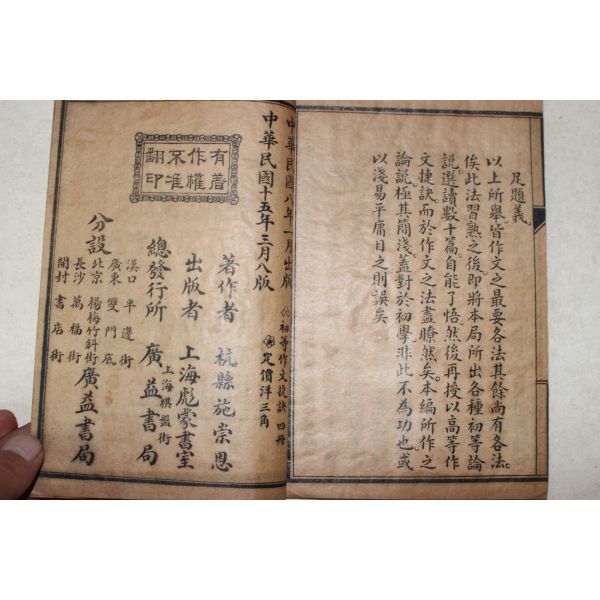 足題義。
以上所舉皆作文之最要各法。其餘尚有各法。
俟此法習熟之後。即將本局所出各種初等論
說選讀數十篇。自能了悟然後再授以高等作
文捷訣。而於作文之法盡瞭然矣。本編所作之
論說。極其簡淺。蓋對於初學。非此不為功也。或
以淺易平庸目之則誤矣
中華民國八年一月出版
初等作文捷訣四冊
定價洋三角
中華民國十五年三月八版
有著
作權
不准
翻印
著作者 杭縣施崇恩
出版者 上海彪蒙書室
總發行所 上海棋盤街 廣益書局
分設
漢口半邊街
廣東雙門底
北京楊梅竹斜街
長沙萬福街
開封書店街
廣益書局